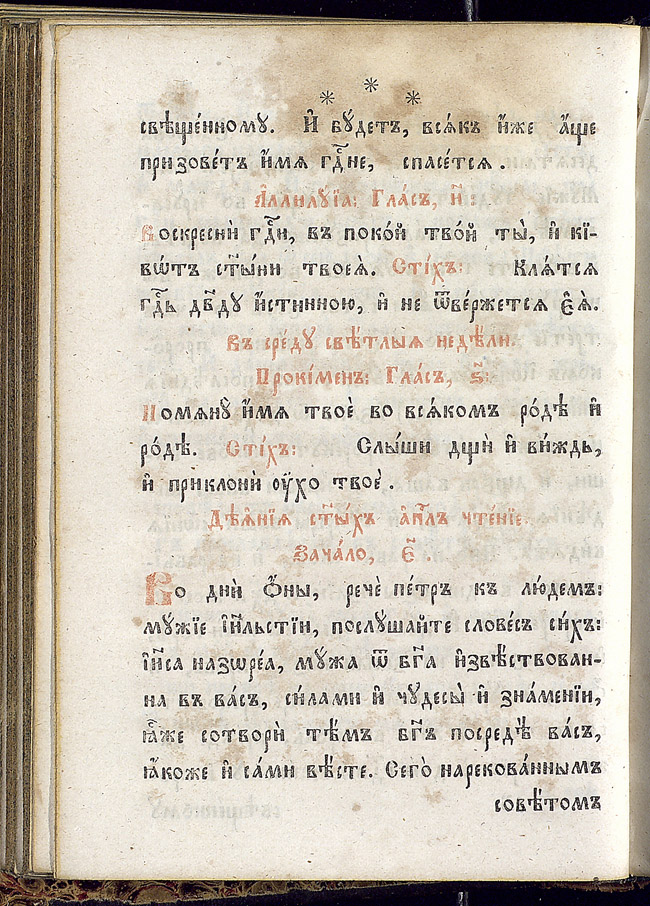 * * *
свѣще́нномꙋ. И҆ бꙋ́детъ, всѧ́къ и҆́же а҆́ще
призове́тъ и҆́мѧ гдⷭ҇не, спасе́тсѧ.
А҆ллилꙋ́їа: Гла́съ, и҃:
Воскреснѝ гдⷭ҇и, въ поко́й тво́й ты̀, и҆ кї-
вѡ́тъ ст҃ы́ни твоеѧ̀. Сті́хъ: Клѧ́тсѧ
гдⷭ҇ь дв҃дꙋ и҆́стинною, и҆ не ѿве́ржетсѧ є҆ѧ̀.
Въ сре́дꙋ свѣ́тлыѧ недѣ́ли.
Прокі́менъ: Гла́съ, ѕ҃:
Помѧнꙋ̀ и҆́мѧ твоѐ во всѧ́комъ ро́дѣ и҆
ро́дѣ. Сті́хъ: Слы́ши дщѝ и҆ ви́ждь,
и҆ приклонѝ ᲂу҆́хо твоѐ.
Дѣѧ̑нїѧ ст҃ы́хъ а҆пⷭ҇лъ чте́нїе.
Зача́ло, є҃.
Во днѝ ѻ҆́ны, речѐ пе́тръ къ лю́демъ:
мꙋ́жїе і҆и҃льстїи, послꙋ́шайте слове́съ си́хъ:
і҆и҃са назѡре́а, мꙋ́жа ѿ бг҃а и҆звѣ́ствован-
на въ ва́съ, си́лами и҆ чꙋдесы̀ и҆ зна́менїи,
ꙗ҆̀же сотворѝ тѣ́мъ бг҃ъ посредѣ̀ ва́съ,
ꙗ҆́коже и҆ са́ми вѣ́сте. Сего̀ нарекова́ннымъ
совѣ́томъ